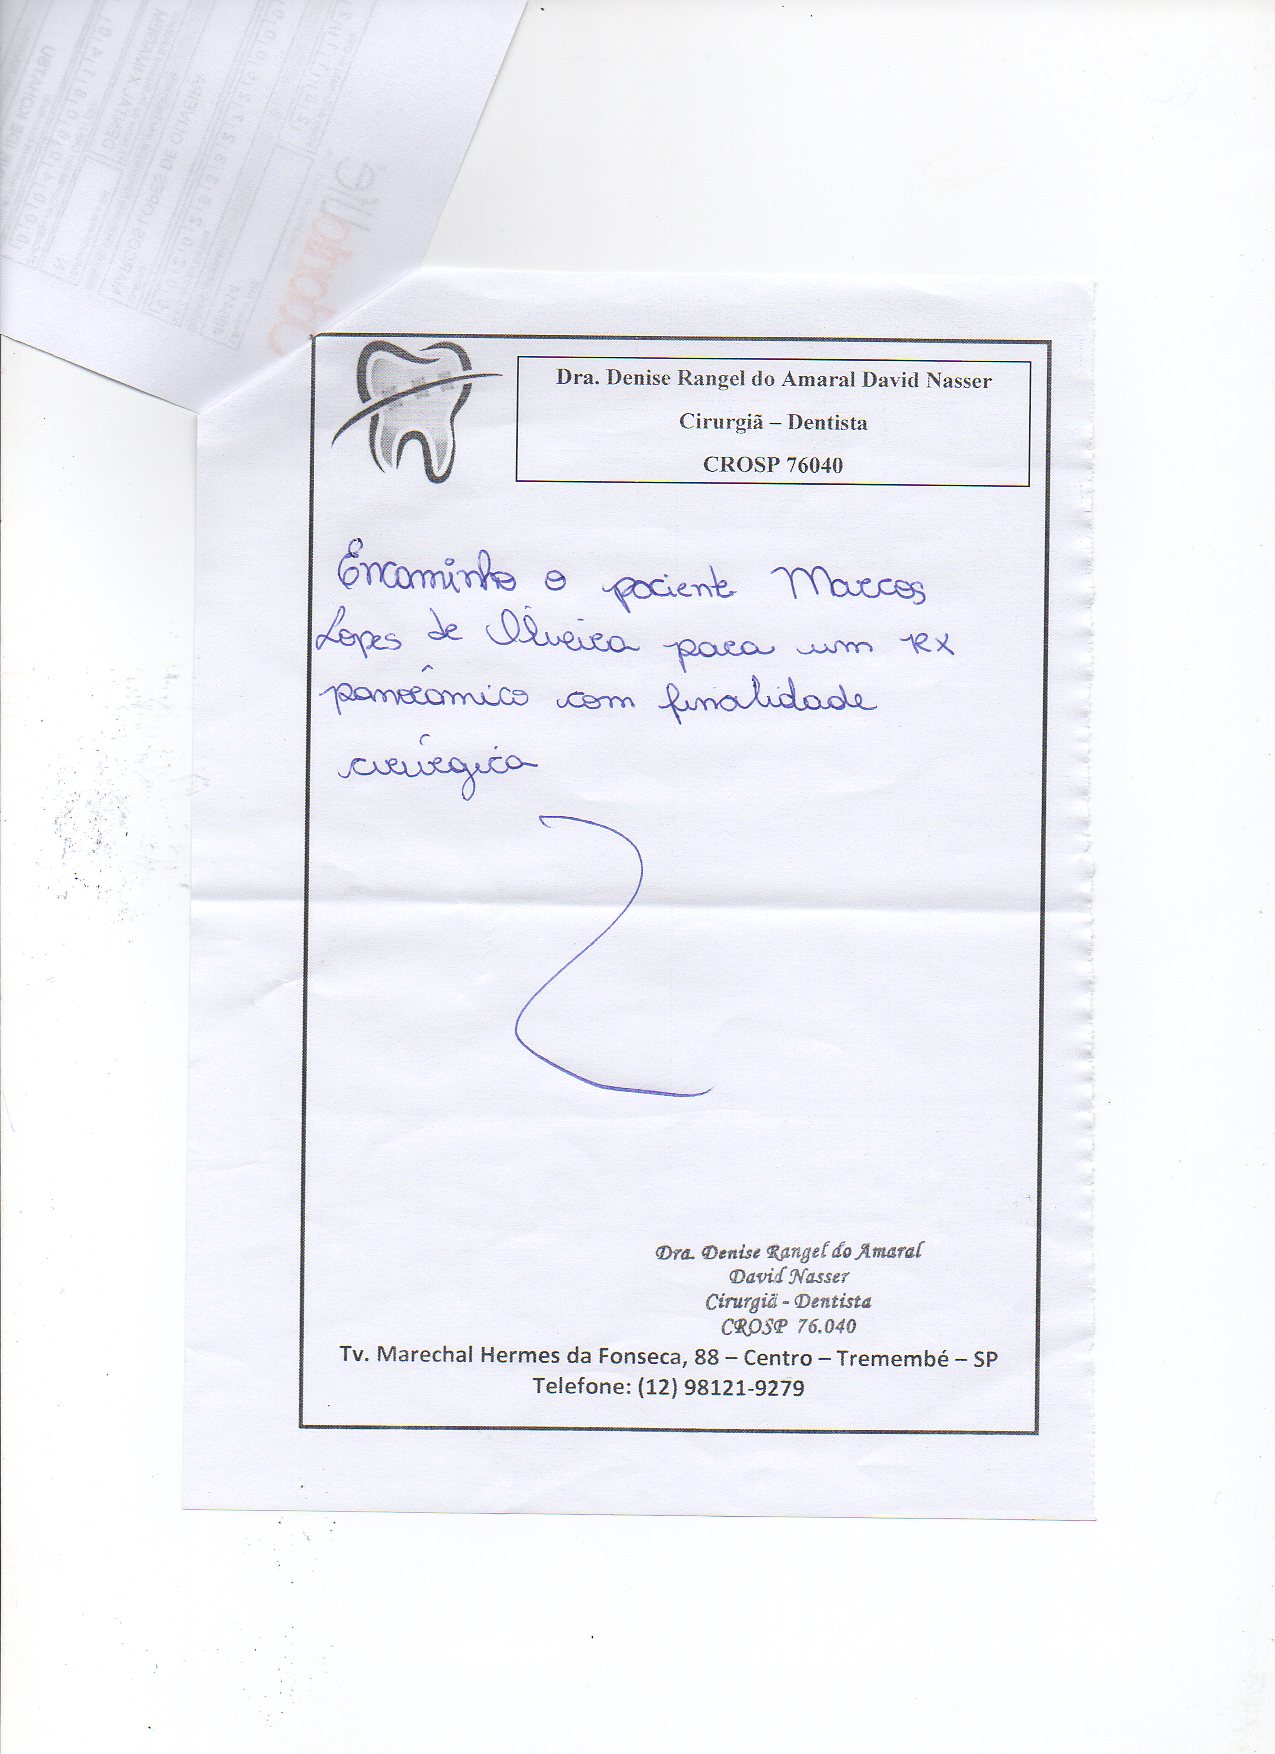 Dra. Denise Rangel do Amaral David Nasser
Cirurgiã – Dentista
CROSP 76040
Encaminho o paciente Marcos
Lopes de Oliveira para um RX
panorâmico com finalidade
cirúrgica
Dra. Denise Rangel do Amaral
David Nasser
Cirurgiã - Dentista
CROSP 76.040
Tv. Marechal Hermes da Fonseca, 88 – Centro – Tremembé – SP
Telefone: (12) 98121-9279